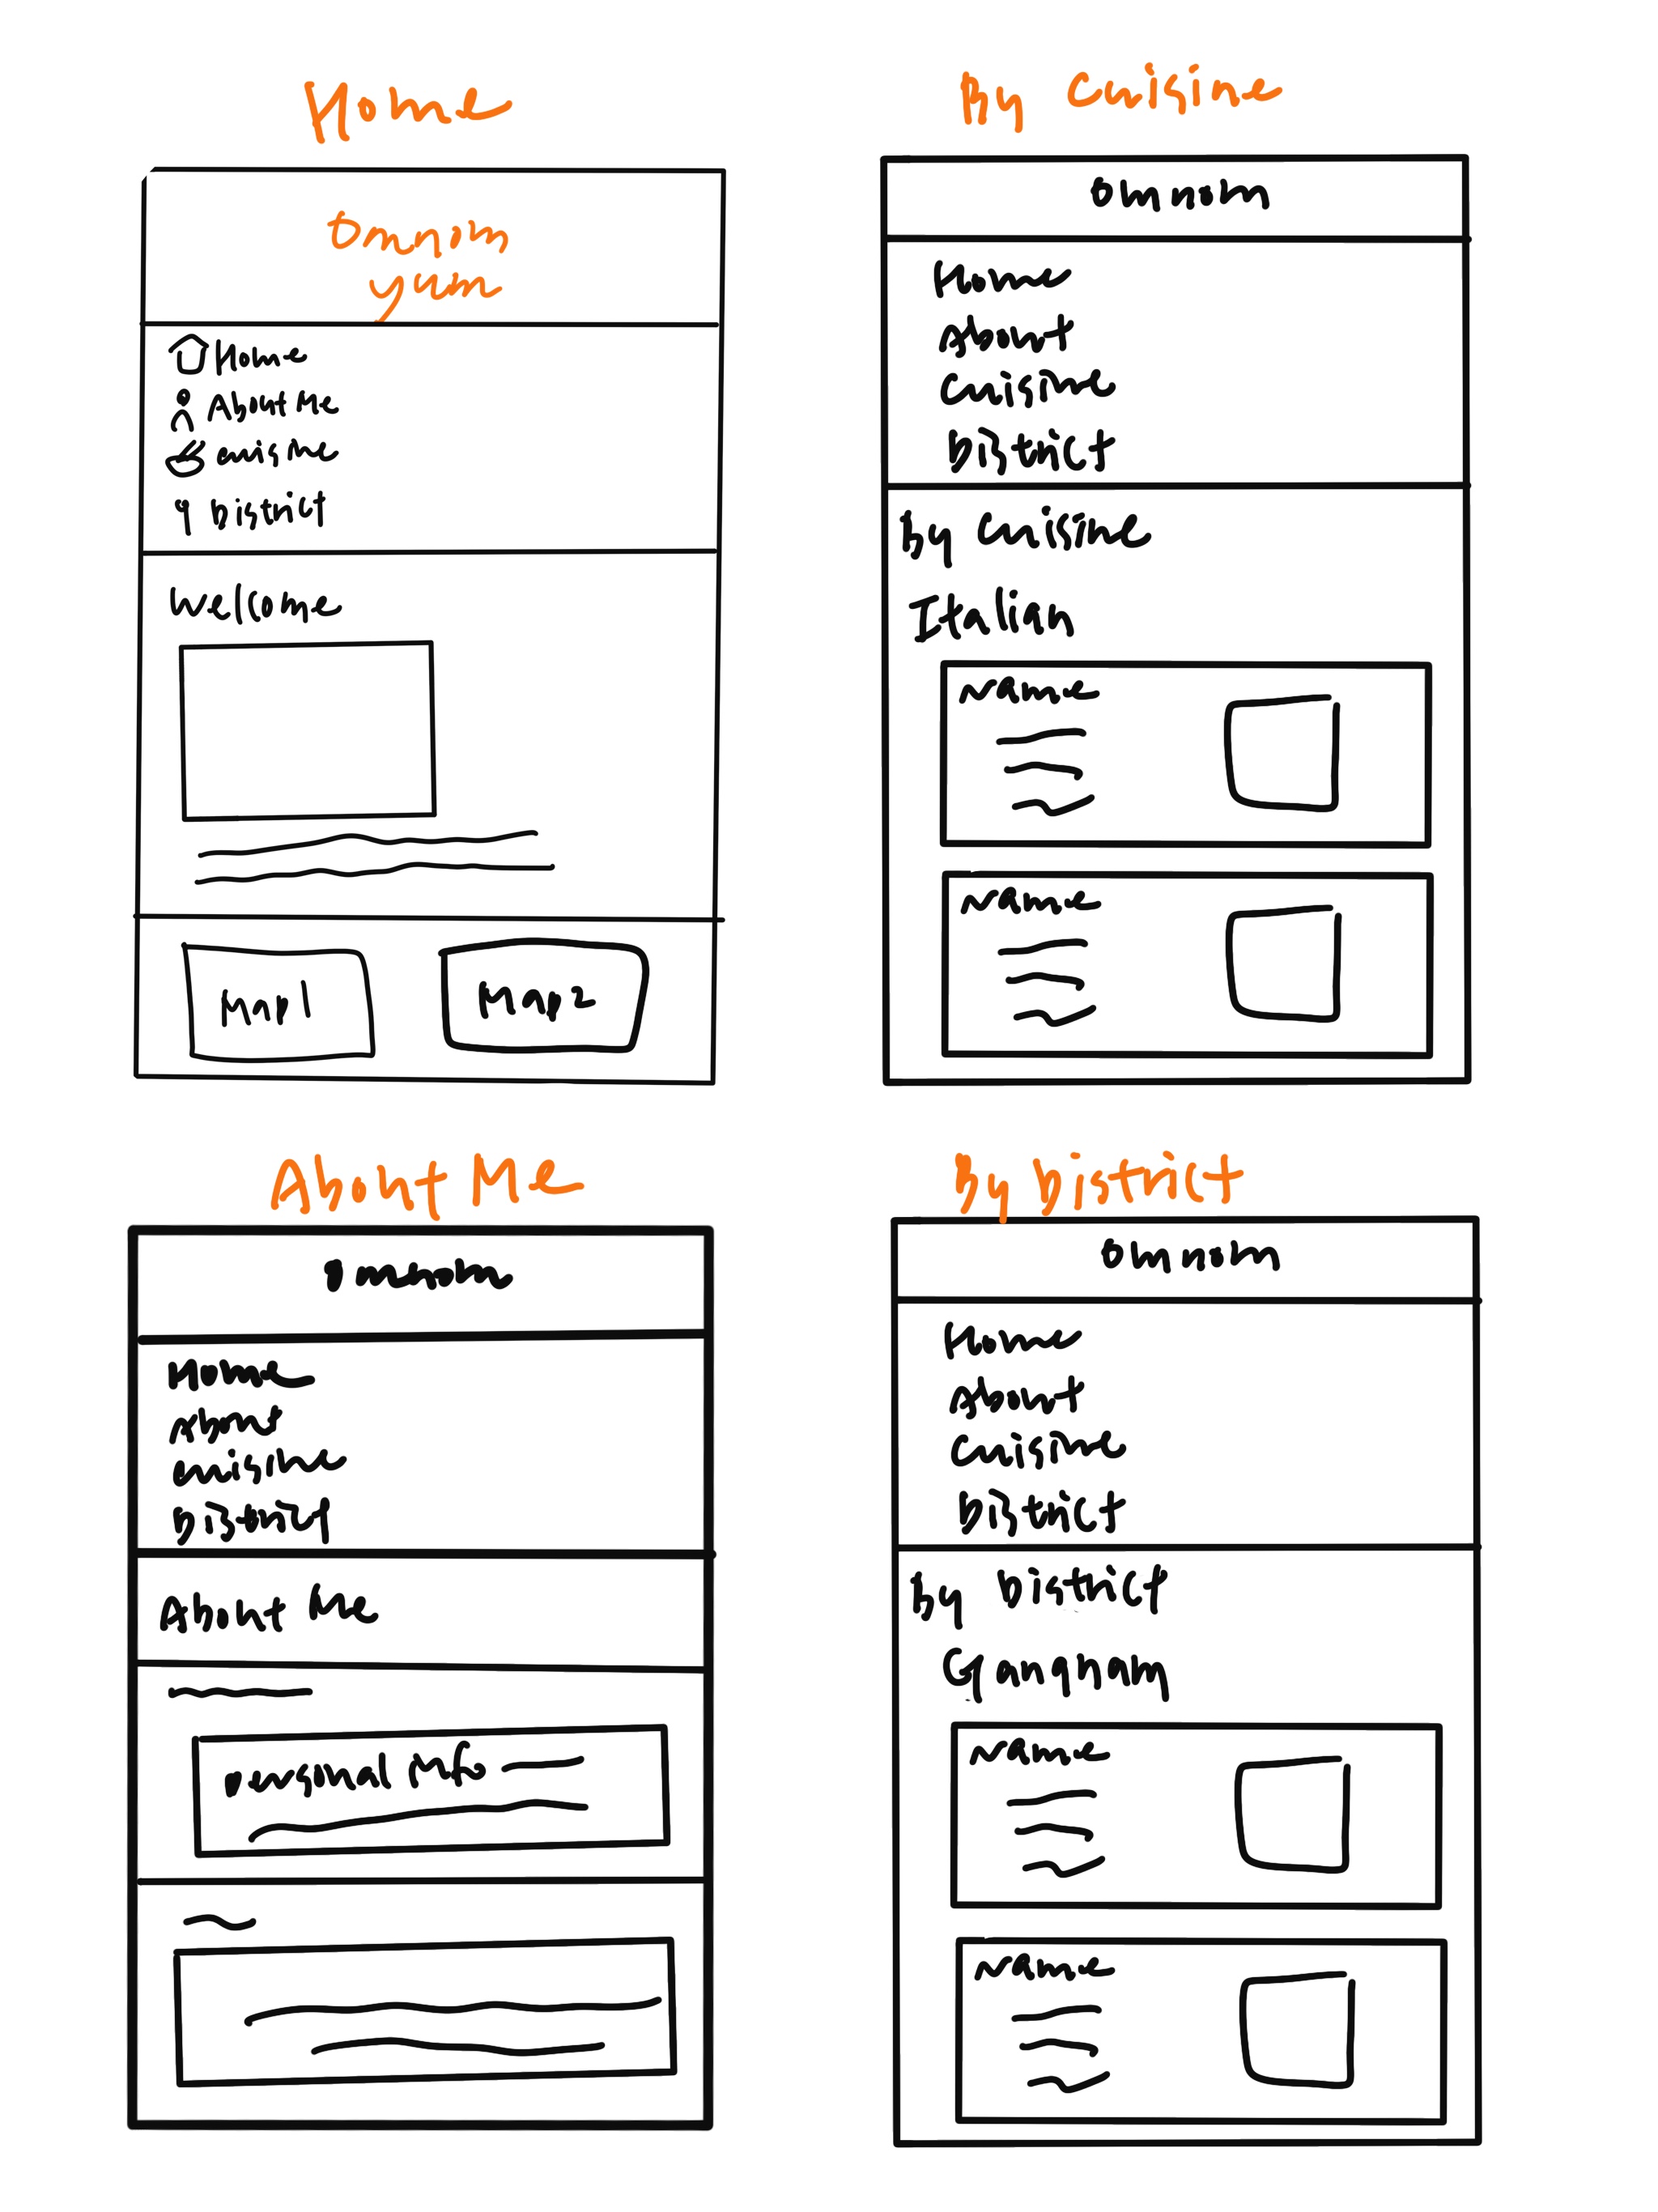 Home
Omnom
yum
Home
About Me
Cuisine
District
Welcome
Map1
Map2
By Cuisine
Omnom
Home
About
Cuisine
District
By Cuisine
Italian
Name
Name
About Me
Omnom
Home
About
Cuisine
District
About Me
Personal Info
By District
Omnom
Home
About
Cuisine
District
By District
Gangnam
Name
Name